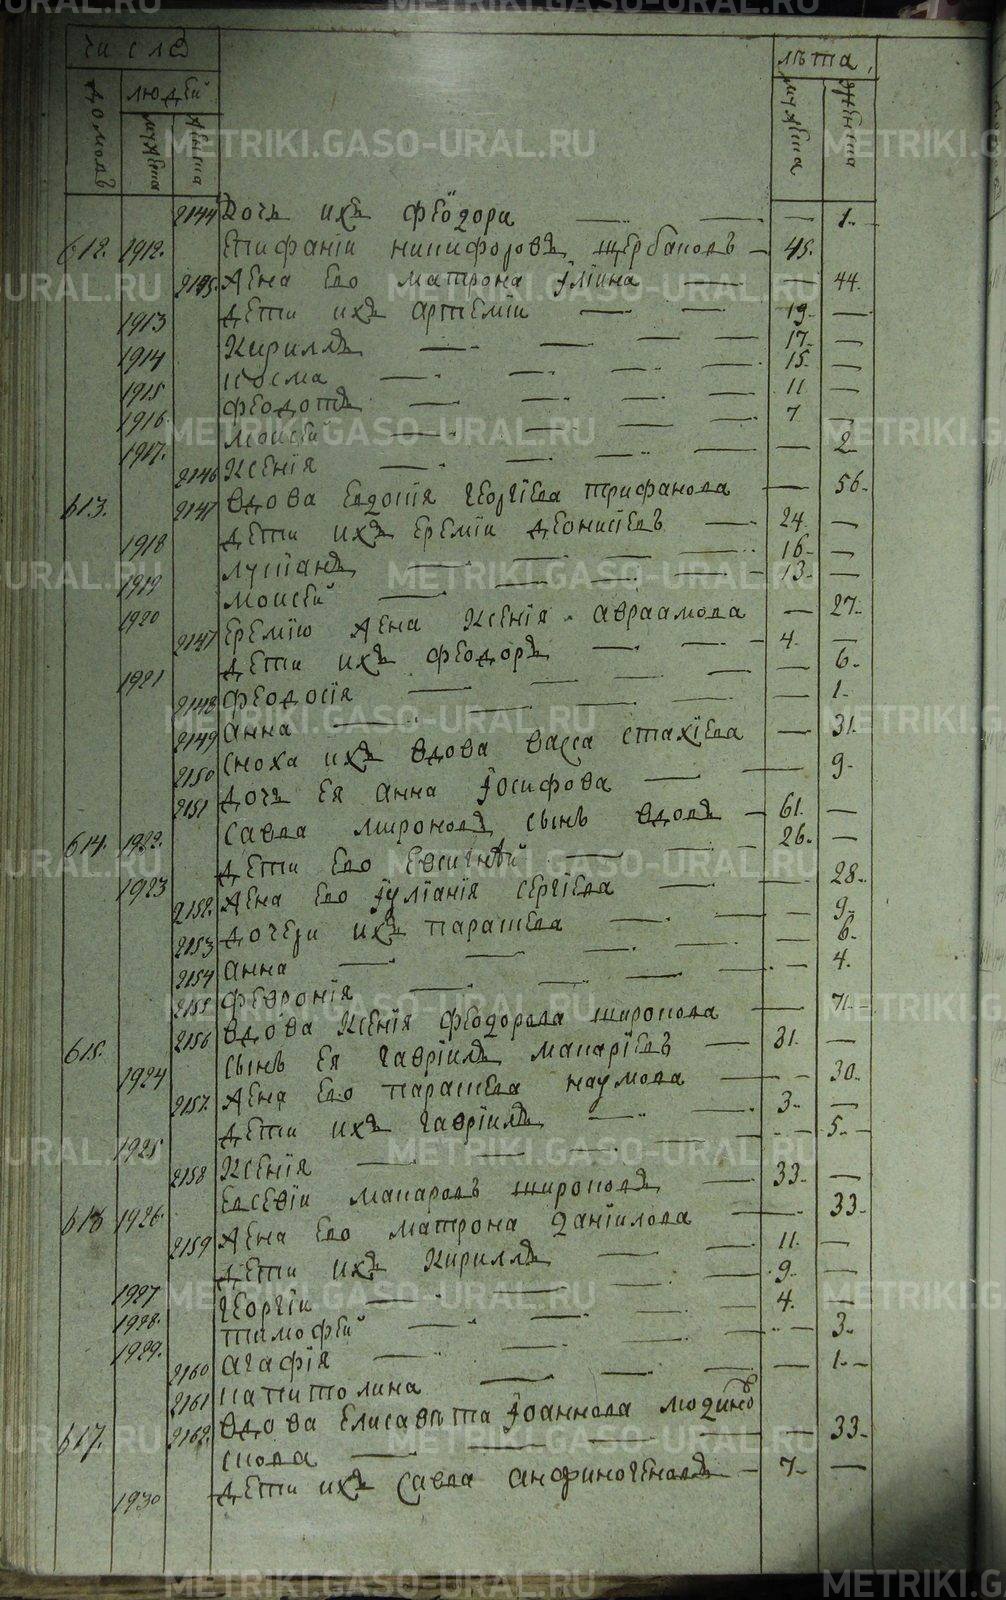 число лѣта
домовъ людей мужеска женска
мужеска женска
2144 Дочь ихъ Феодора — — — 1.
612. 1912. Епифаній Никифоровъ Щербаковъ — 45.
2145. Жена его Матрона Іліина — — 44.
1913 Дѣти ихъ Артемій — — 19. —
1914 Кириллъ — — — — 17. —
1915 Косма — — — — 15. —
1916. Феодотъ — — — — 11 —
1917. Моисей — — — — 7 —
2146 Ксенія — — — — — 2
613. 2147 Вдова Евдокія Георгіева Трифанова — 56.
1918 Дѣти ихъ Еремій Деонисіевъ — 24. —
1919 Лукіанъ — — — — 16. —
1920 Моисей — — — — 13. —
2147 Еремію жена Ксенія Авраамова — 27.
1921 Дѣти ихъ Феодоръ — — — 4. —
2148 Феодосія — — — — — 6.
2149 Анна — — — — — 1.
2150 Сноха ихъ вдова Васса Стахіева — 31.
2151 Дочь ея Анна Іосифова — — 9.
614. 1922. Савва Мироновъ сынъ вдовъ — 61. —
1923 Дѣти его Евсигнѣй — — — 26. —
2152. Жена его Іуліанія Сергіева — — 28.
2153 Дочери ихъ Парасева — — — 9.
2154 Анна — — — — — 6.
2155 Февронія — — — — — 4.
615. 2156 Вдова Ксенія Феодорова Широкова — 71.
1924 Сынъ ея Гавріилъ Макаріевъ — 31. —
2157. Жена его Парасева Наумова — — 30.
1925 Дѣти ихъ Гавріилъ — — — 3. —
2158 Ксенія — — — — — 5. —
616 1926. Евсевій Макаровъ Широковъ — 33. —
2159 Жена его Матрона Даніилова — — 33.
1927 Дѣти ихъ Кириллъ — — — 11. —
1928. Георгій — — — — 9. —
1929. Тимофей — — — — 4. —
2160 Агафія — — — — — 3.
2161 Капитолина — — — — 1. —
617. 2162. Вдова Елисавѣта Іоаннова Людинов
скова — — — — — 33.
1930 Дѣти ихъ Савва Анфиногеновъ — 7. —
METRIKI.GASO-URAL.RU